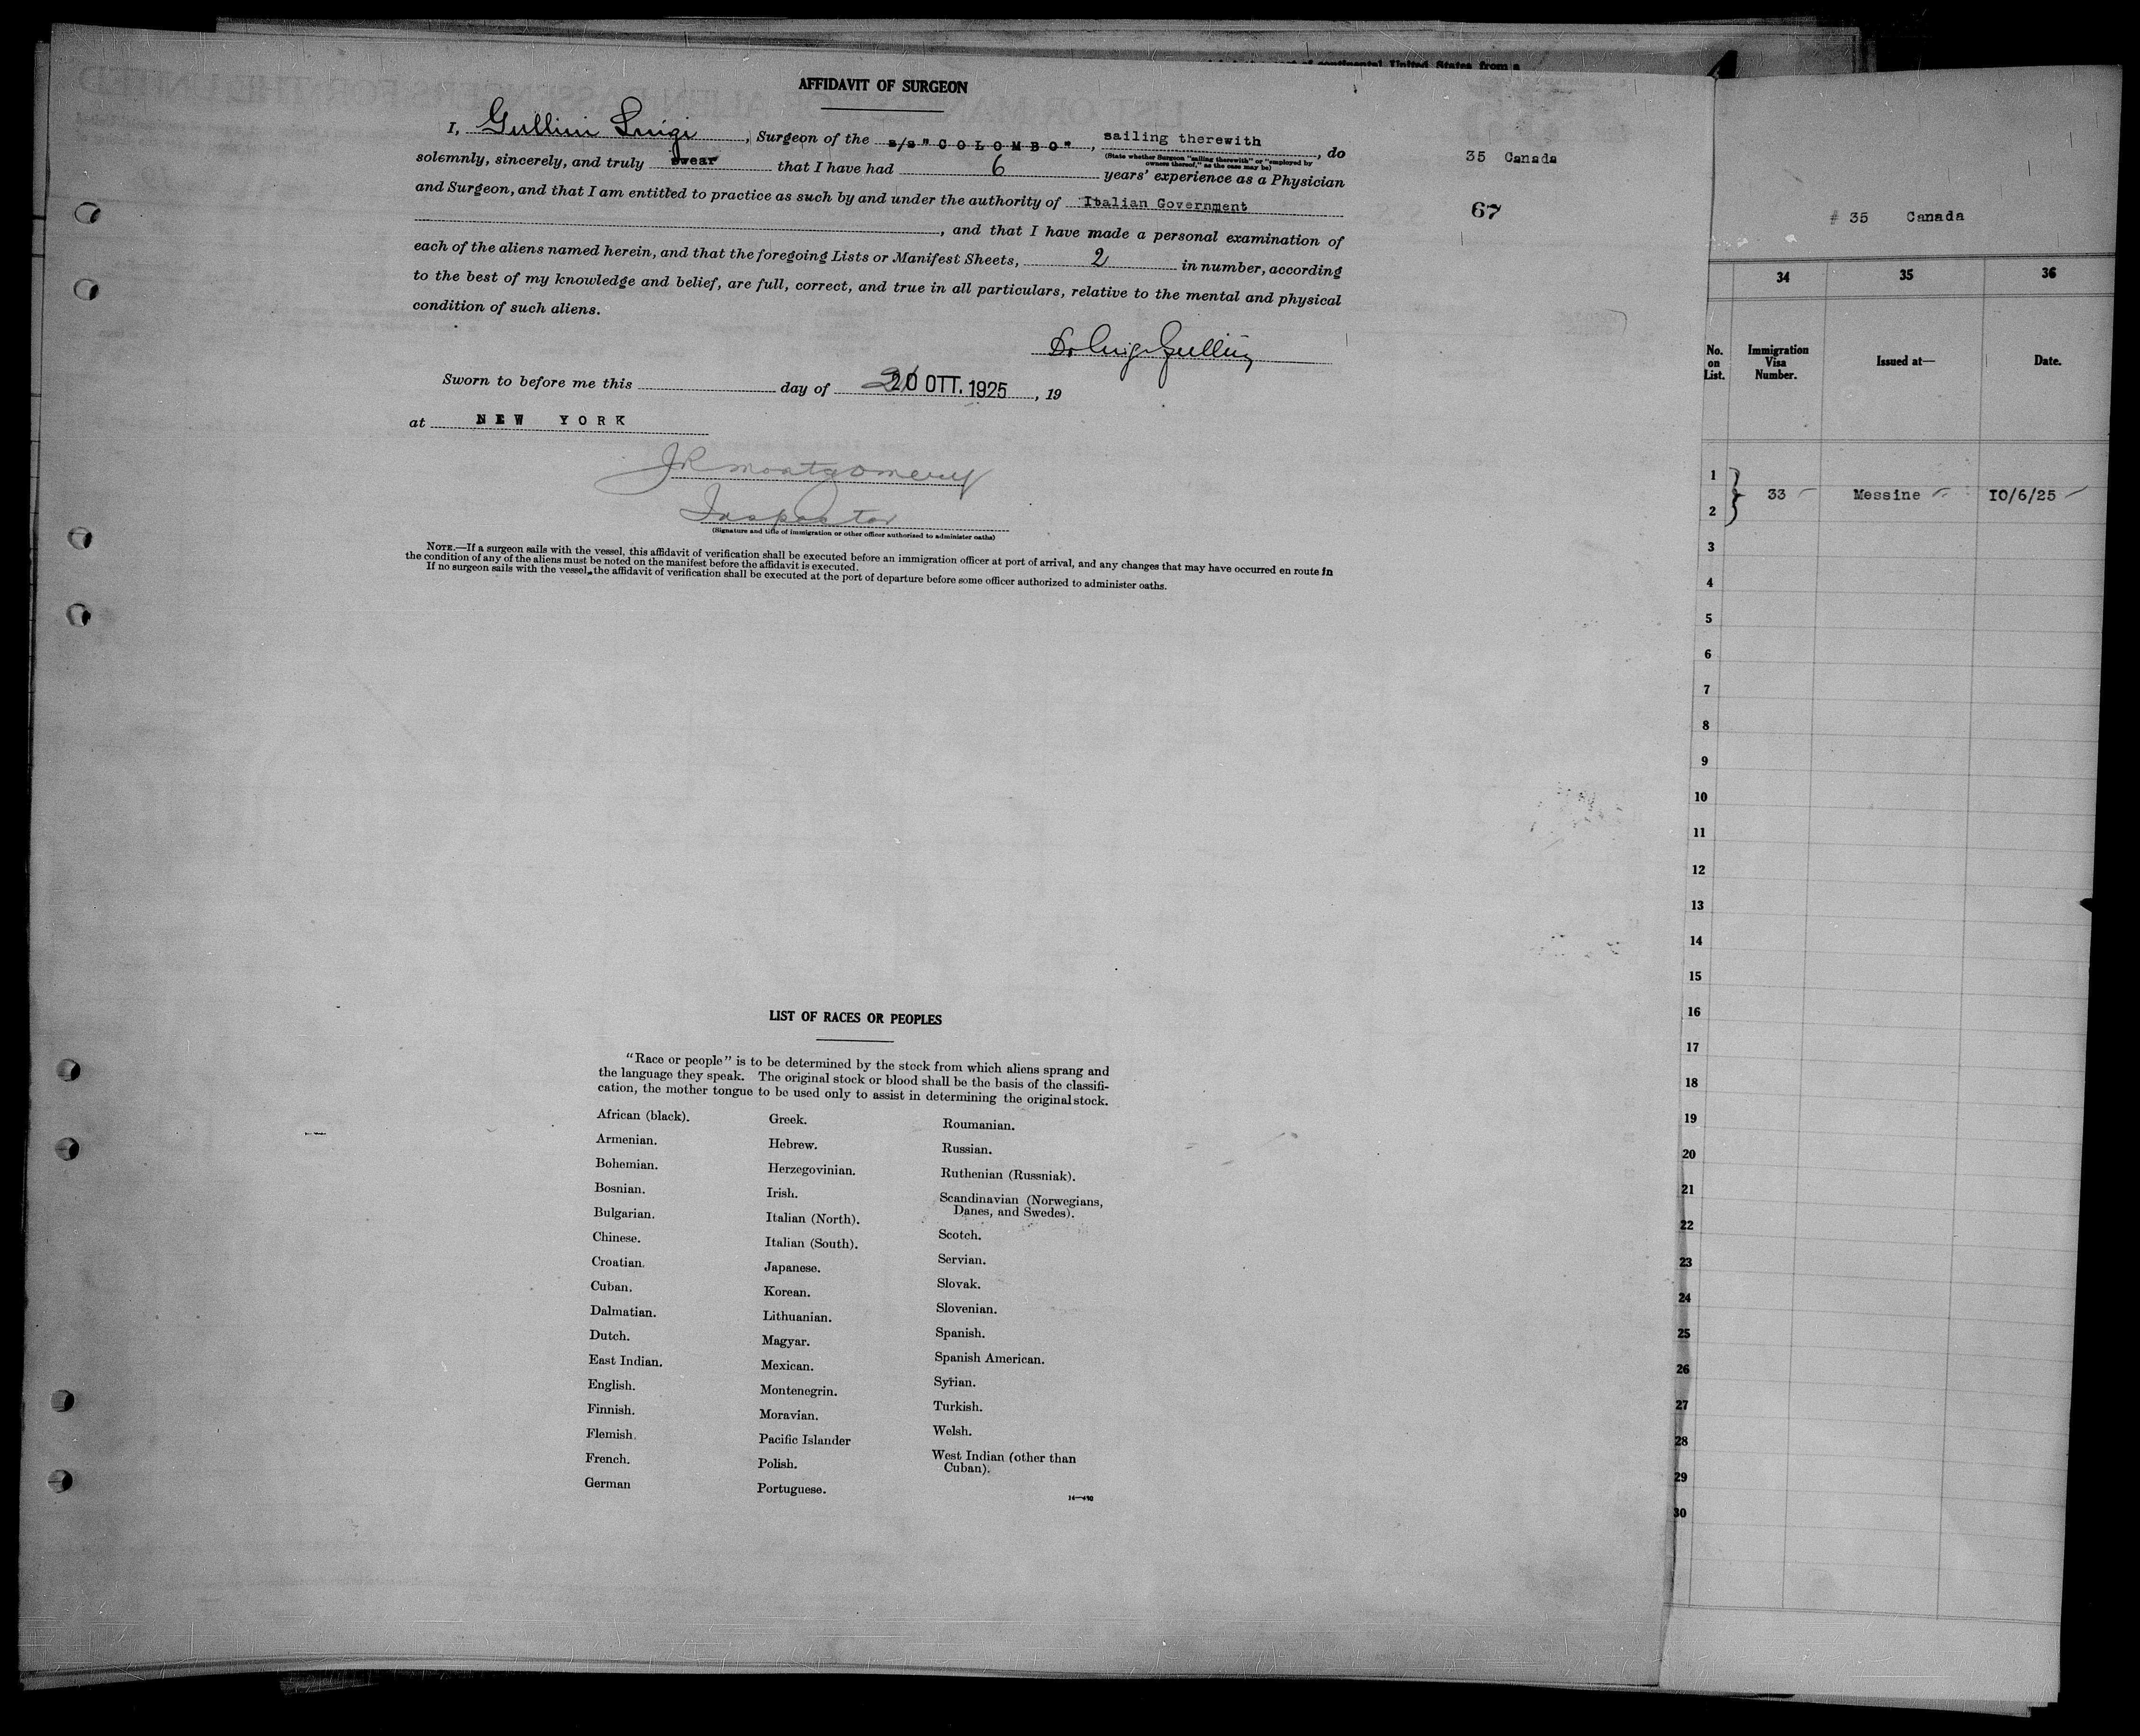 AFFIDAVIT OF SURGEON
I, Gullini Luigi, Surgeon of the s/s "COLOMBO", sailing therewith, do
(State whether Surgeon "sailing therewith" or "employed by owners thereof," as the case may be)
solemnly, sincerely, and truly swear that I have had 6 years' experience as a Physician
and Surgeon, and that I am entitled to practice as such by and under the authority of Italian Government
, and that I have made a personal examination of
each of the aliens named herein, and that the foregoing Lists or Manifest Sheets, 2 in number, according
to the best of my knowledge and belief, are full, correct, and true in all particulars, relative to the mental and physical
condition of such aliens.
Dr Luigi Gullini
Sworn to before me this day of 20 OTT. 1925, 19
at NEW YORK
JR Montgomery
Inspector
(Signature and title of immigration or other officer authorized to administer oaths)
NOTE.—If a surgeon sails with the vessel, this affidavit of verification shall be executed before an immigration officer at port of arrival, and any changes that may have occurred en route in
the condition of any of the aliens must be noted on the manifest before the affidavit is executed.
If no surgeon sails with the vessel, the affidavit of verification shall be executed at the port of departure before some officer authorized to administer oaths.
35 Canada
67
LIST OF RACES OR PEOPLES
"Race or people" is to be determined by the stock from which aliens sprang and
the language they speak. The original stock or blood shall be the basis of the classifi-
cation, the mother tongue to be used only to assist in determining the original stock.
African (black).
Armenian.
Bohemian.
Bosnian.
Bulgarian.
Chinese.
Croatian.
Cuban.
Dalmatian.
Dutch.
East Indian.
English.
Finnish.
Flemish.
French.
German
Greek.
Hebrew.
Herzegovinian.
Irish.
Italian (North).
Italian (South).
Japanese.
Korean.
Lithuanian.
Magyar.
Mexican.
Montenegrin.
Moravian.
Pacific Islander
Polish.
Portuguese.
Roumanian.
Russian.
Ruthenian (Russniak).
Scandinavian (Norwegians,
Danes, and Swedes).
Scotch.
Servian.
Slovak.
Slovenian.
Spanish.
Spanish American.
Syrian.
Turkish.
Welsh.
West Indian (other than
Cuban).
14—490
# 35 Canada
34 35 36
No. on List. Immigration Visa Number. Issued at— Date.
1
33 Messine 10/6/25
2
3
4
5
6
7
8
9
10
11
12
13
14
15
16
17
18
19
20
21
22
23
24
25
26
27
28
29
30